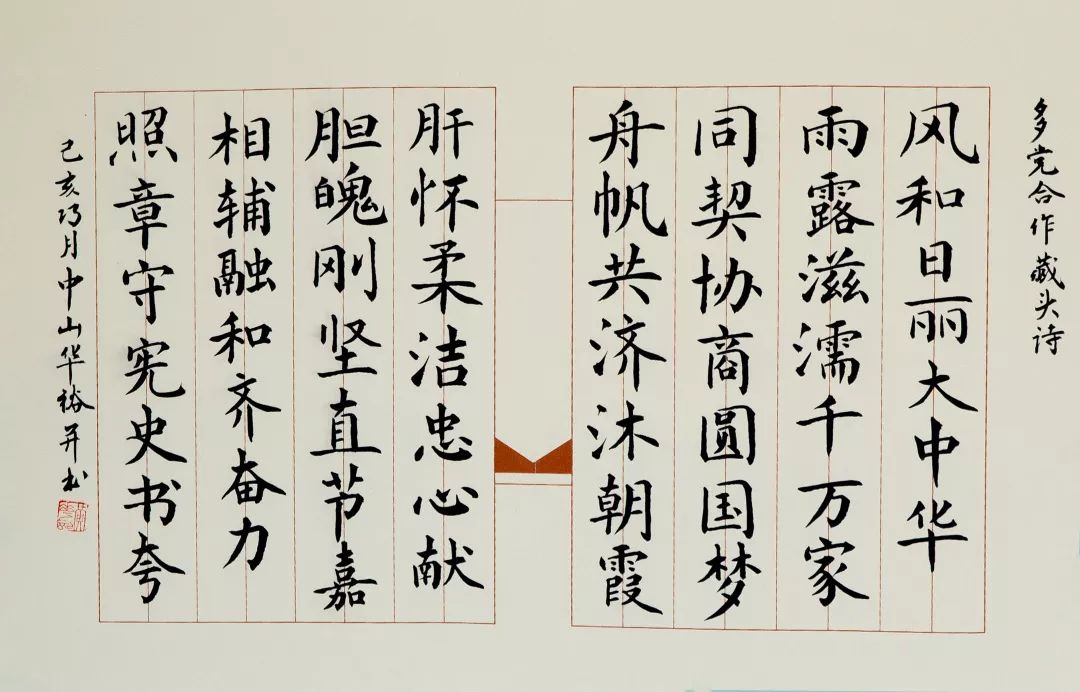 多党合作藏头诗
风和日丽大中华
雨露滋濡千万家
同契协商圆国梦
舟帆共济沐朝霞
肝怀柔洁忠心献
胆魄刚坚直节嘉
相辅融和齐奋力
照章守宪史书夸
己亥巧月中山华裕并书